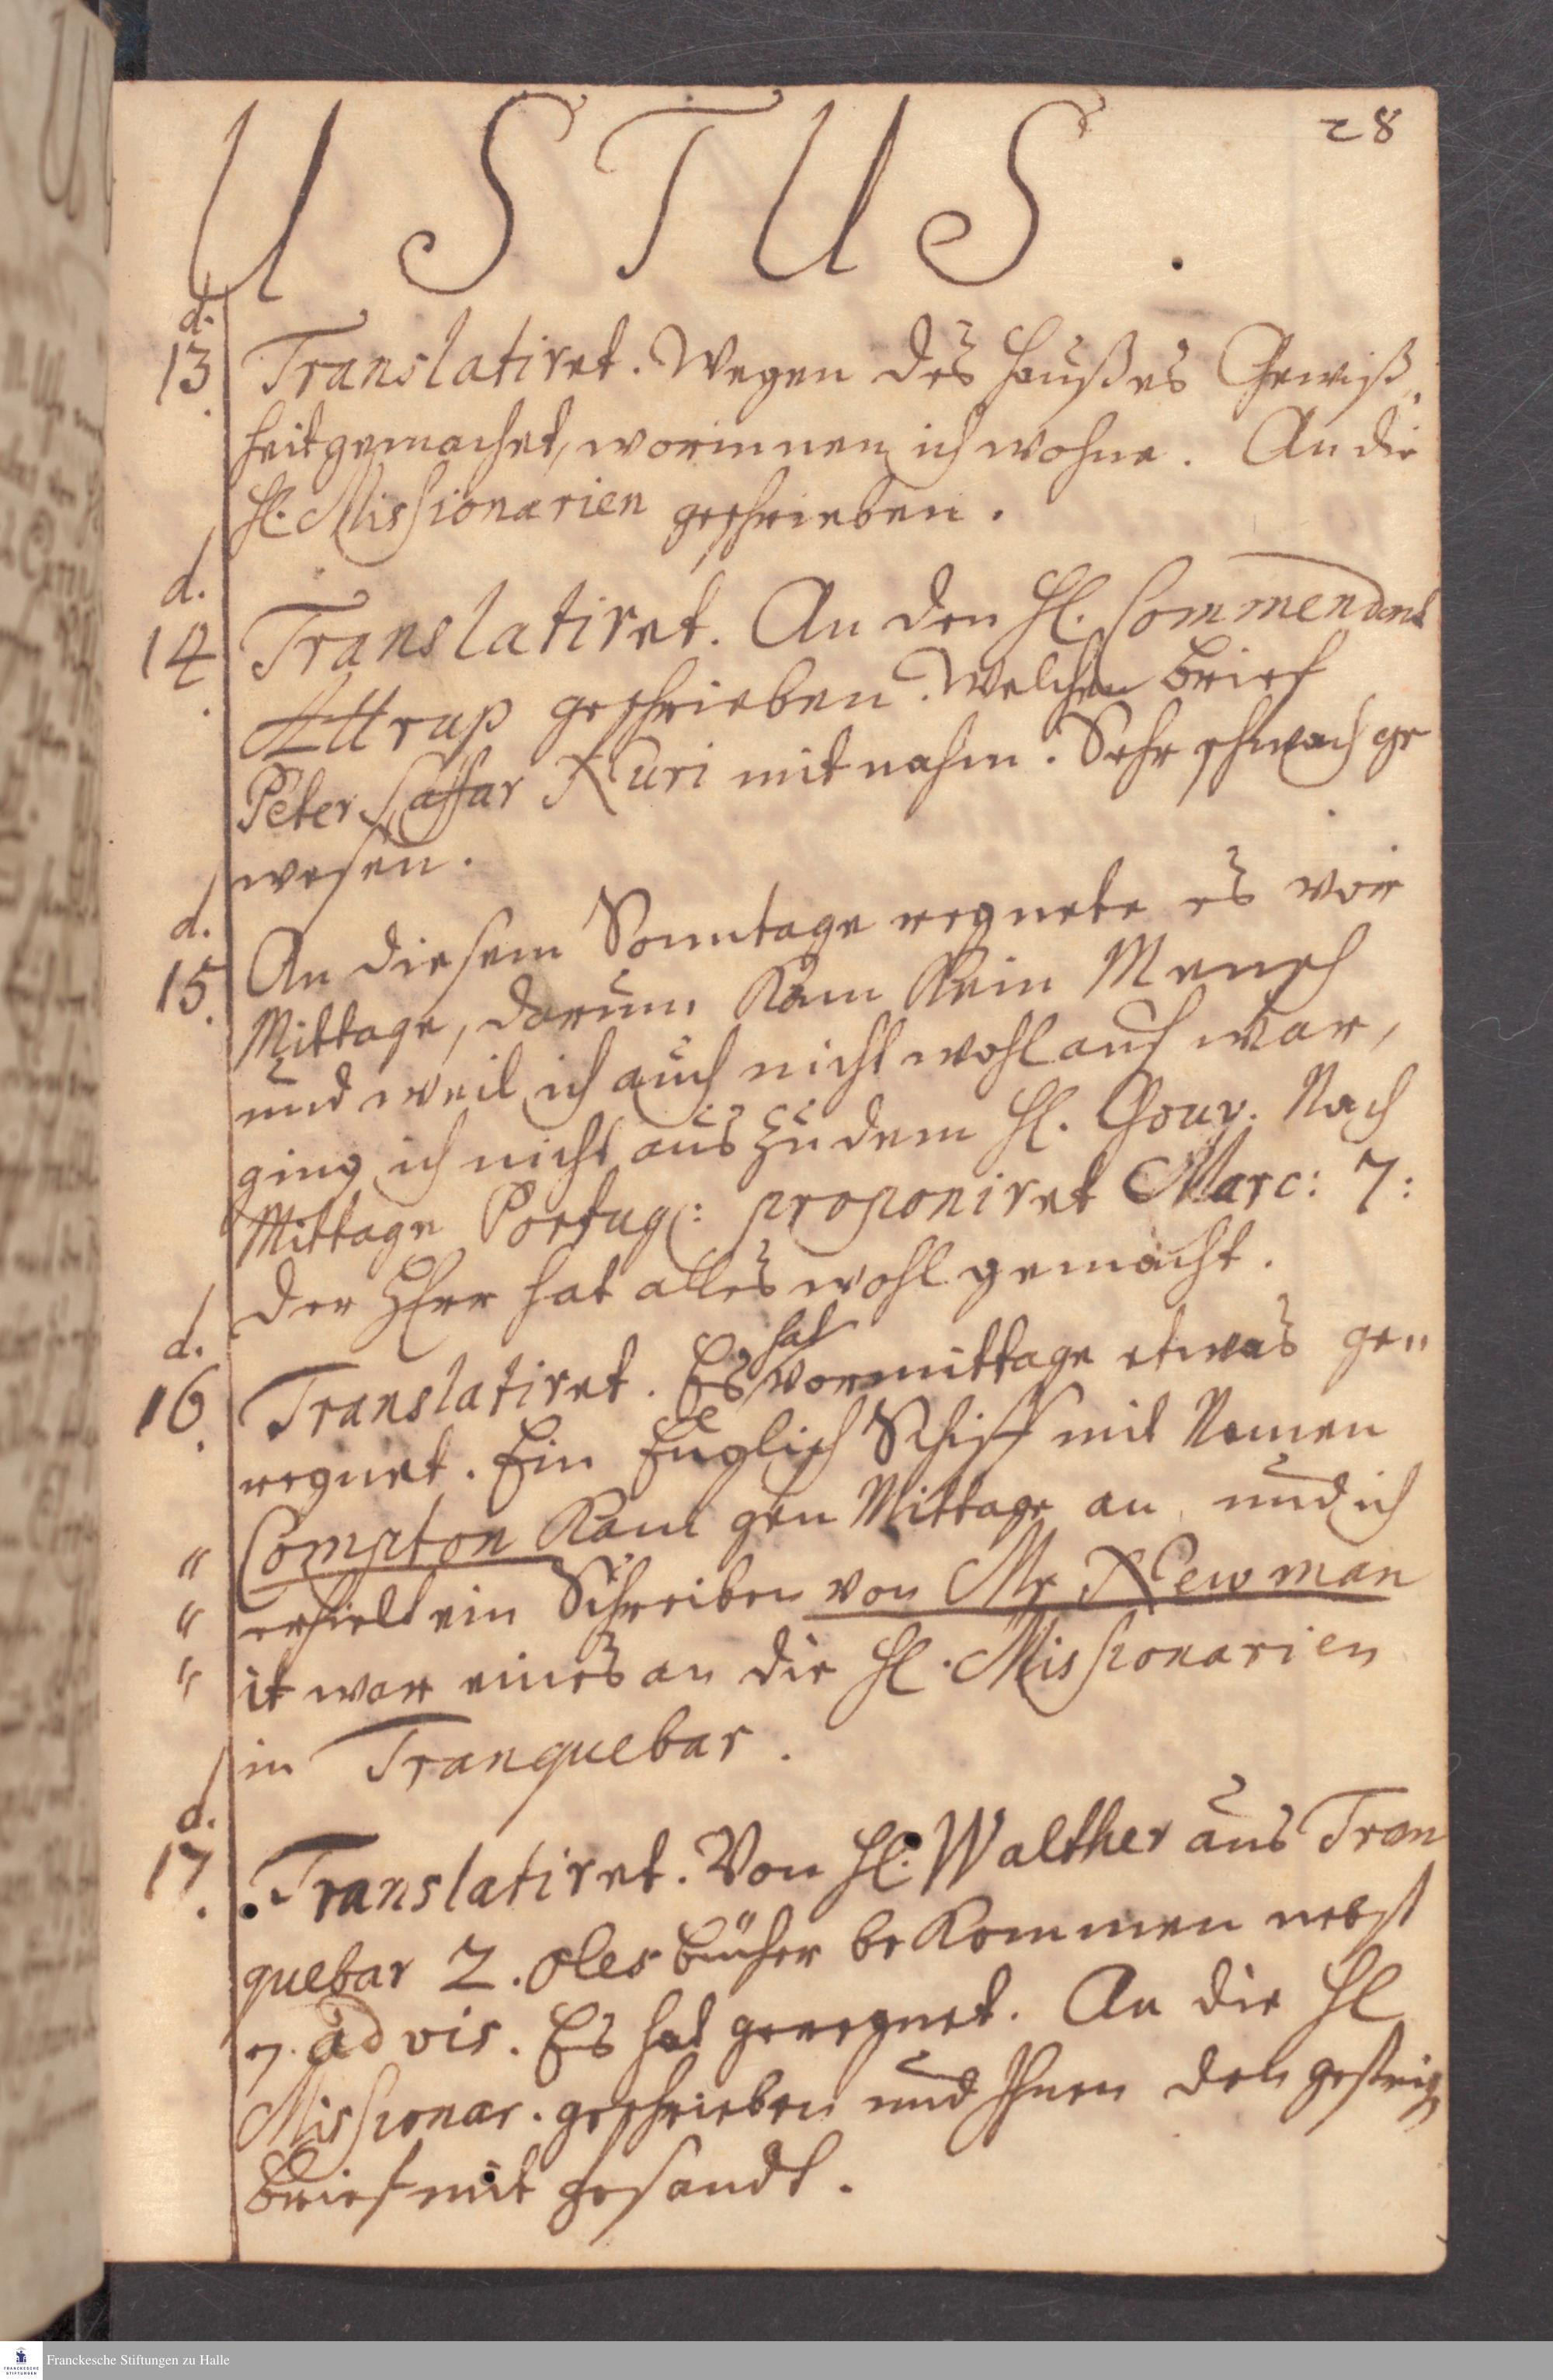 28
USTUS.
d.
13. Translatiret. Wegen des Haußes Gewiß-
heit gemachet, worinnen ich wohne. An die
H. Missionarien geschrieben.
d.
14. Translatiret. An den H. Commendant
Attrup geschrieben. Welchen Brief
Peter Caffar Kuri mitnahm. Sehr schwach ge
wesen.
d.
15. An diesem Sonntage regnete es vor
Mittage, darum kam kein Mensch
und weil ich auch nicht wohl auf war,
ging ich nicht aus zu dem H. Gouv. Nach
Mittage Portug: proponiret Marc: 7:
der HErr hat alles wohl gemacht.
d.
16. Translatiret. Es hat vormittage etwas ge„
regnet. Ein Englisch Schiff mit Namen
" Compton kam gen Mittage an, und ich
" erhielt ein Schreiben von Mr Newman
" it war eines an die H. Missionarien
in Tranquebar.
d.
17. Translatiret. Von H. Walther aus Tran
quebar 2. Oles bücher bekommen nebst
7. advis. Es hat geregnet. An die H
Missionar. geschrieben und Ihnen den gestrig
Brief mit gesandt.
FRANCKESCHE STIFTUNGEN
Franckesche Stiftungen zu Halle